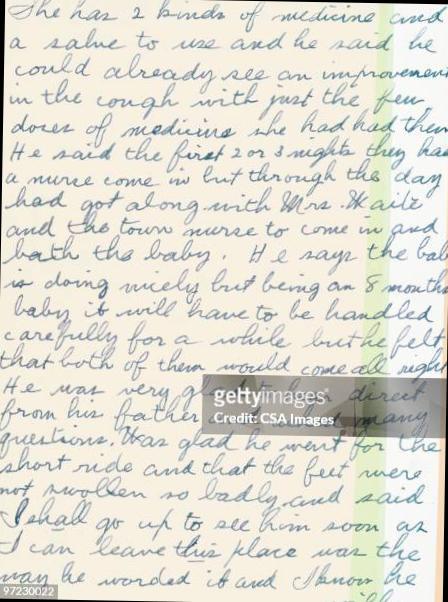 She has 2 kinds of medicine and
a salve to use and he said he
could already see an improvement
in the cough with just the few
doses of medicine she had had then
He said the first 2 or 3 nights they had
a nurse come in but through the day
had got along with Mrs. Waite
and the town nurse to come in and
bath the baby. He says the bab
is doing nicely but being an 8 months
baby it will have to be handled
carefully for a while but he felt
that both of them would come all right
He was very glad to hear direct
from his father many
questions. Was glad he went for the
short ride and that the feet were
not swollen so badly and said
I shall go up to see him soon as
I can leave this place was the
way he worded it and I know he
gettyimages
Credit: CSA Images
97230022